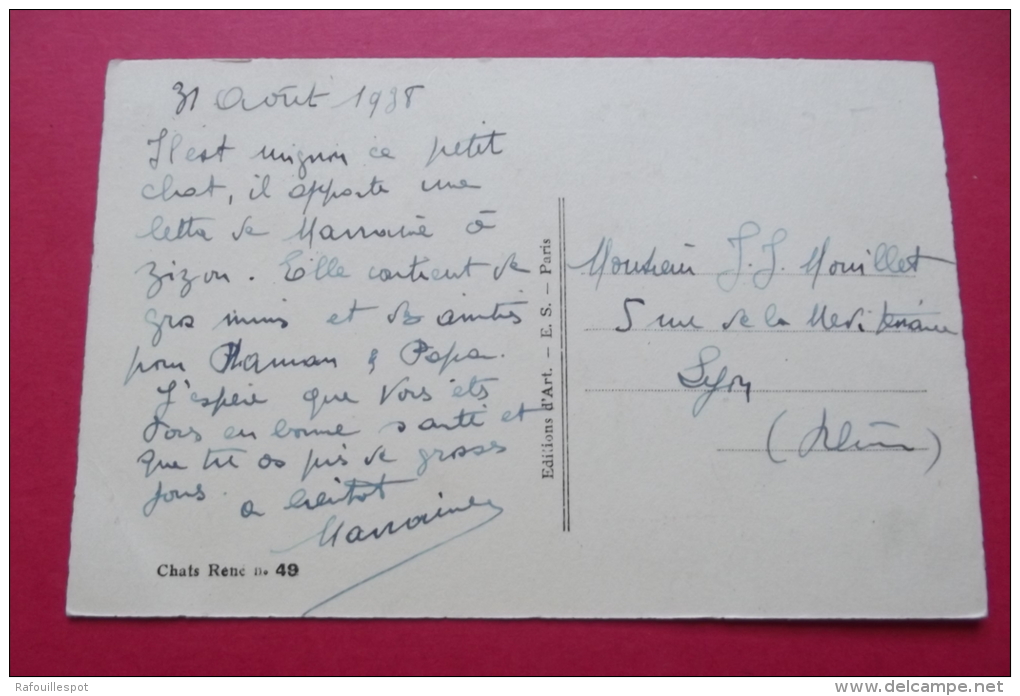 31 Août 1938
Il est mignon ce petit
chat, il apporte une
lettre de Marraine à
Zizou. Elle contient de
gros mimis et des amitiés
pour Maman & Papa.
J'espère que vous êtes
tous en bonne santé et
que tu as pris de grosses
joues. a bientôt
Marraine
Chats René n° 49
Editions d'Art. — E. S. — Paris
Monsieur J. J. Mouillet
5 rue de la Mediterranée
Lyon
(Rhône)
Rafouillespot
www.delcampe.net